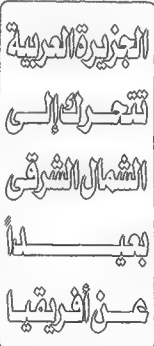 الجزيرة العربية
تتحرك إلى
الشمال الشرقى
بعيداً
عن أفريقيا